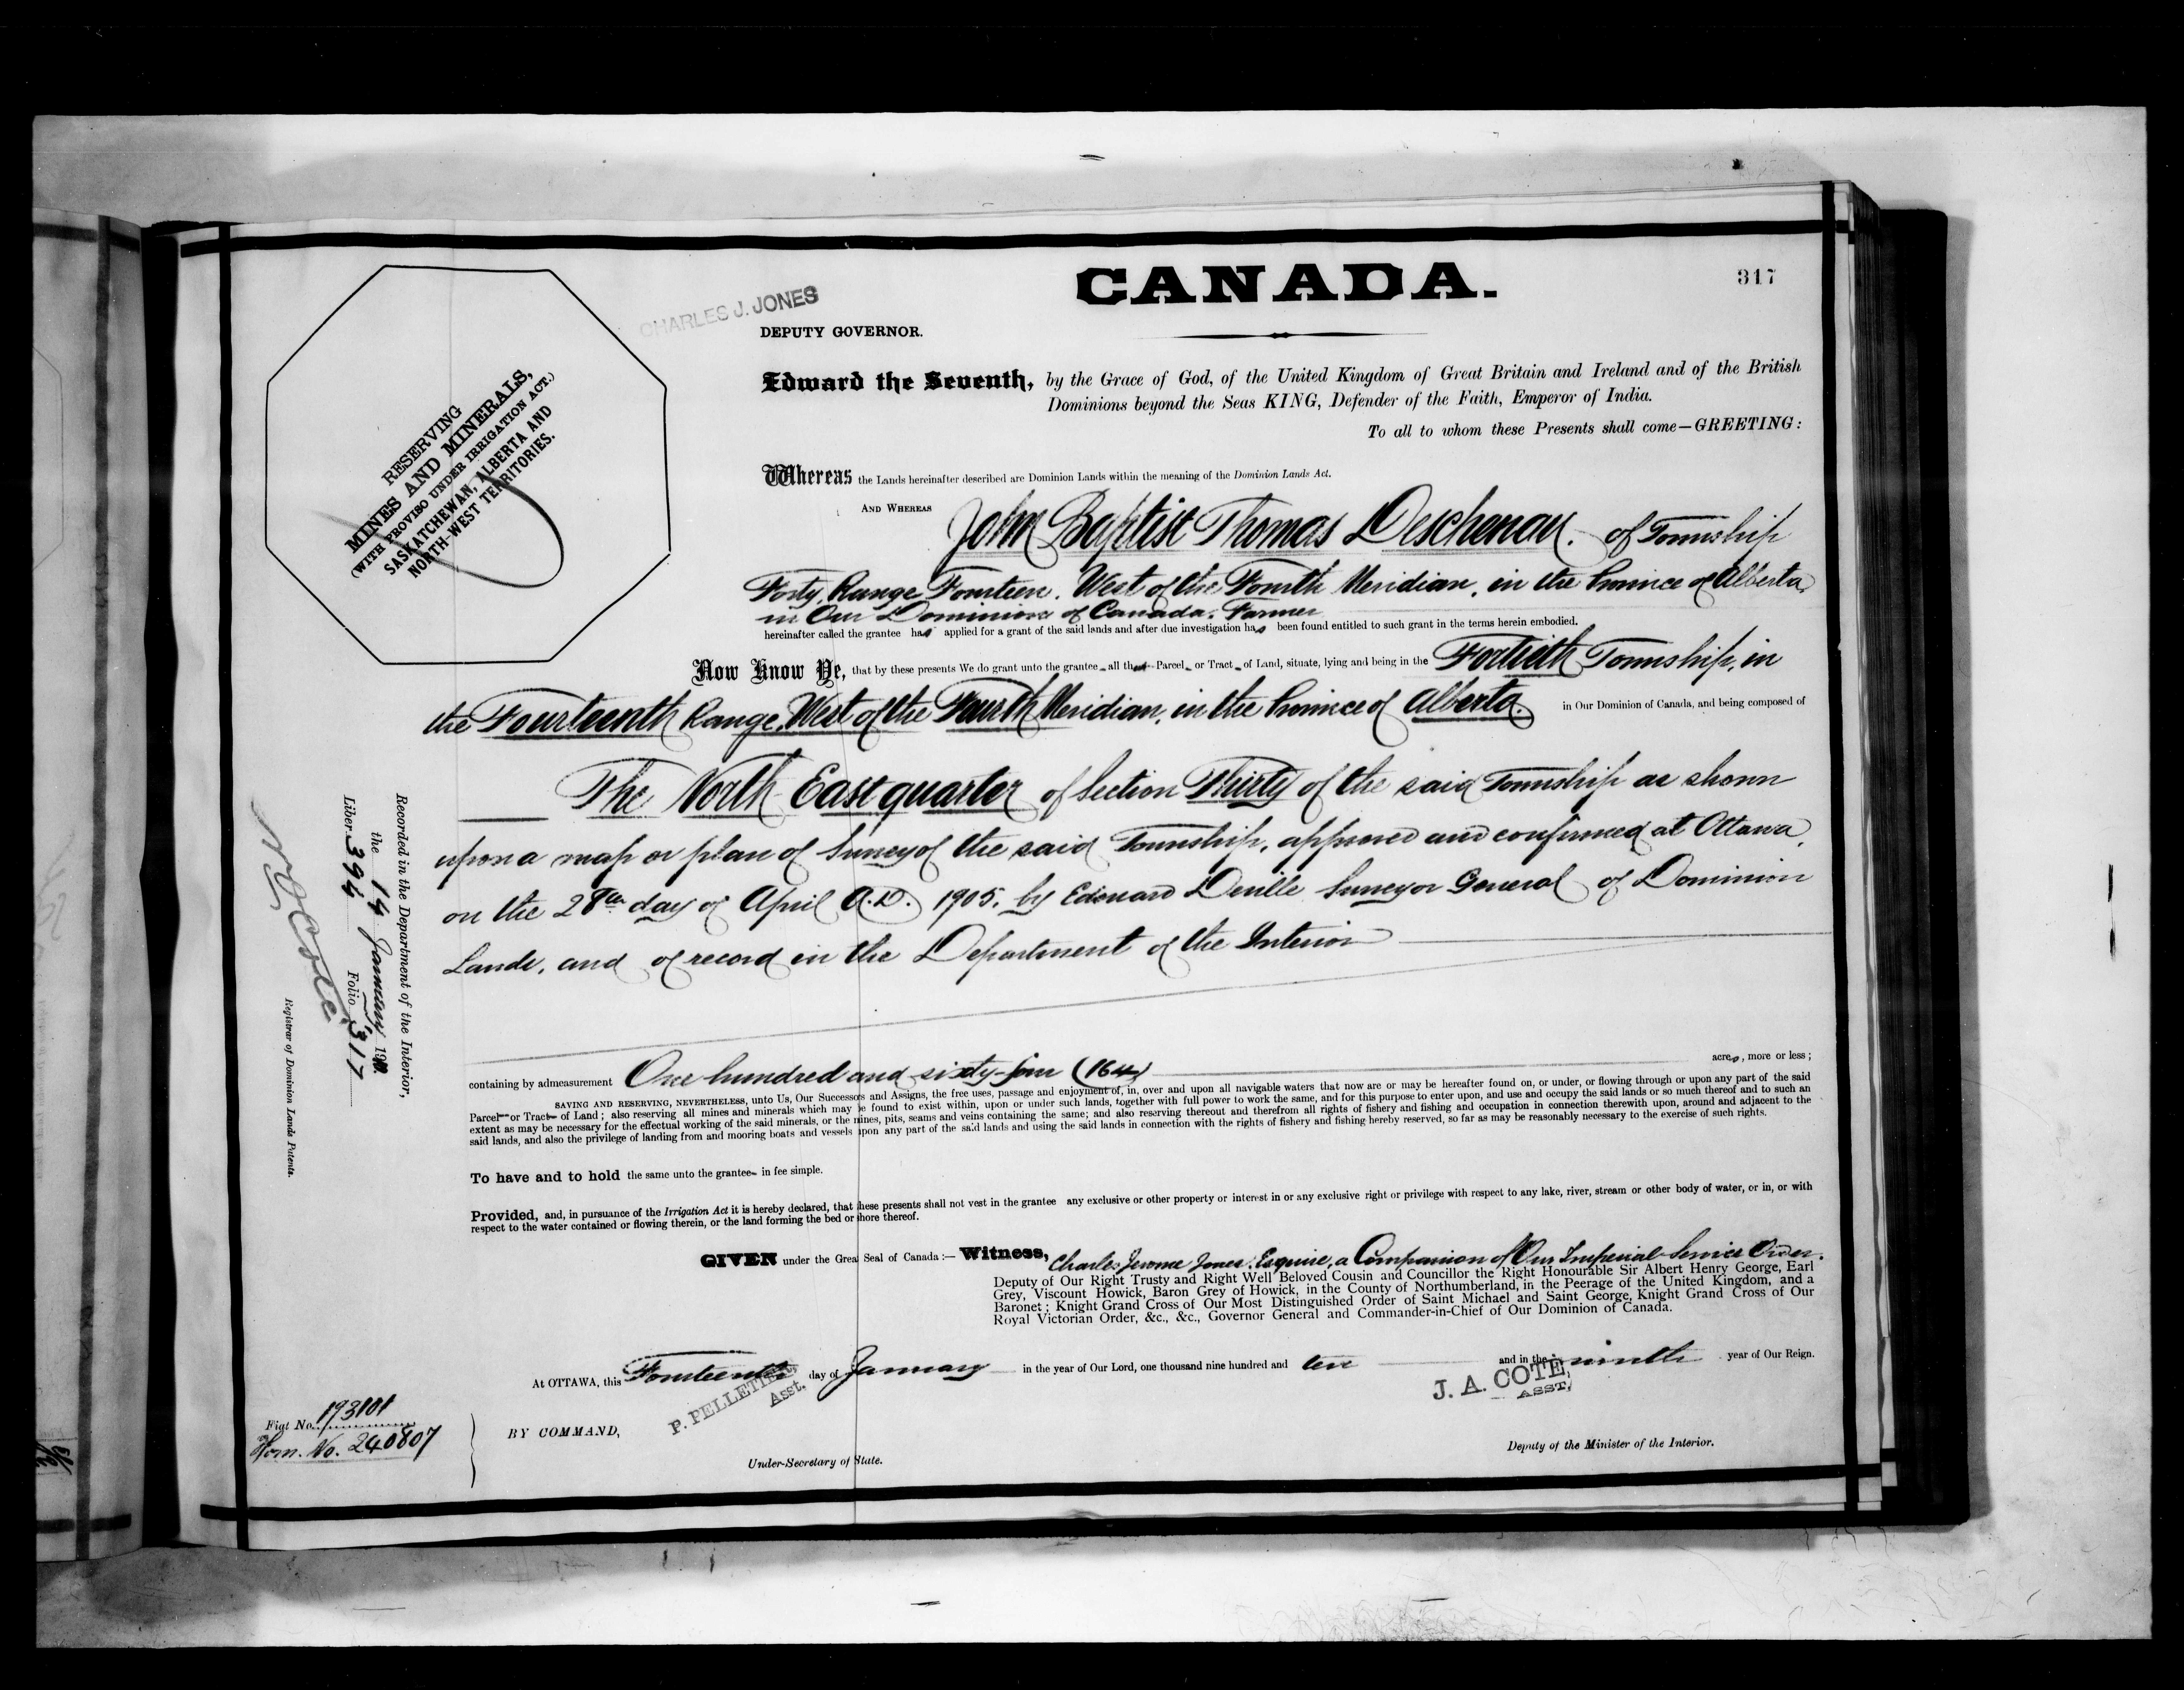 CANADA.
317
CHARLES J. JONES
DEPUTY GOVERNOR.
RESERVING
MINES AND MINERALS,
(WITH PROVISO UNDER IRRIGATION ACT.)
SASKATCHEWAN, ALBERTA AND
NORTH-WEST TERRITORIES.
Edward the Seventh, by the Grace of God, of the United Kingdom of Great Britain and Ireland and of the British
Dominions beyond the Seas KING, Defender of the Faith, Emperor of India.
To all to whom these Presents shall come—GREETING:
Whereas the Lands hereinafter described are Dominion Lands within the meaning of the Dominion Lands Act.
AND WHEREAS John Baptist Thomas Deschenau. of Township
Forty, Range Fourteen, West of the Fourth Meridian, in the Province of Alberta,
in Our Dominion of Canada. Farmer
hereinafter called the grantee has applied for a grant of the said lands and after due investigation has been found entitled to such grant in the terms herein embodied.
Now Know Ye, that by these presents We do grant unto the grantee all that Parcel or Tract of Land, situate, lying and being in the Fortieth Township, in
the Fourteenth Range, West of the Fourth Meridian, in the Province of Alberta. in Our Dominion of Canada, and being composed of
The North East quarter of Section Thirty of the said Township as shown
upon a map or plan of Survey of the said Township, approved and confirmed at Ottawa,
on the 28th day of April A.D. 1905, by Edouard Deville Surveyor General of Dominion
Lands, and of record in the Department of the Interior
containing by admeasurement One hundred and sixty-four (164) acres, more or less;
SAVING AND RESERVING, NEVERTHELESS, unto Us, Our Successors and Assigns, the free uses, passage and enjoyment of, in, over and upon all navigable waters that now are or may be hereafter found on, or under, or flowing through or upon any part of the said
Parcel or Tract of Land; also reserving all mines and minerals which may be found to exist within, upon or under such lands, together with full power to work the same, and for this purpose to enter upon, and use and occupy the said lands or so much thereof and to such an
extent as may be necessary for the effectual working of the said minerals, or the mines, pits, seams and veins containing the same; and also reserving thereout and therefrom all rights of fishery and fishing and occupation in connection therewith upon, around and adjacent to the
said lands, and also the privilege of landing from and mooring boats and vessels upon any part of the said lands and using the said lands in connection with the rights of fishery and fishing hereby reserved, so far as may be reasonably necessary to the exercise of such rights.
To have and to hold the same unto the grantee in fee simple.
Provided, and, in pursuance of the Irrigation Act it is hereby declared, that these presents shall not vest in the grantee any exclusive or other property or interest in or any exclusive right or privilege with respect to any lake, river, stream or other body of water, or in, or with
respect to the water contained or flowing therein, or the land forming the bed or shore thereof.
GIVEN under the Great Seal of Canada:— Witness, Charles Jerome Jones, Esquire, a Companion of Our Imperial Service Order.
Deputy of Our Right Trusty and Right Well Beloved Cousin and Councillor the Right Honourable Sir Albert Henry George, Earl
Grey, Viscount Howick, Baron Grey of Howick, in the County of Northumberland, in the Peerage of the United Kingdom, and a
Baronet; Knight Grand Cross of Our Most Distinguished Order of Saint Michael and Saint George, Knight Grand Cross of Our
Royal Victorian Order, &c., &c., Governor General and Commander-in-Chief of Our Dominion of Canada.
At OTTAWA, this Fourteenth day of January in the year of Our Lord, one thousand nine hundred and ten and in the ninth year of Our Reign.
P. PELLETIER,
Asst.
J. A. COTE,
ASST,
BY COMMAND,
Under-Secretary of State.
Deputy of the Minister of the Interior.
Fiat No. 193101
Hom. No. 240807
Recorded in the Department of the Interior,
the 14 January 19
Liber 394 Folio 317
Registrar of Dominion Lands Patents.